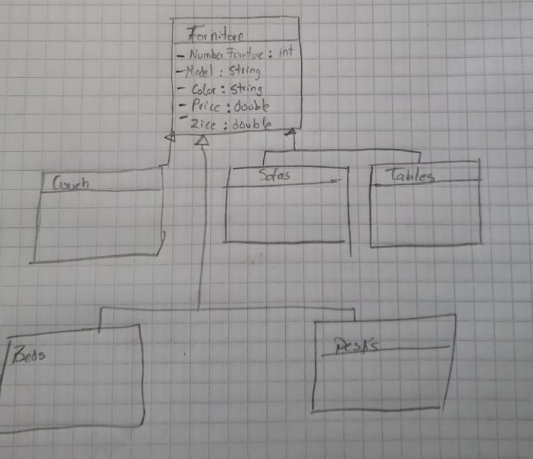 Fornitore
- Number Forniture : int
- Model : String
- Color : String
- Price : double
- Zice : double
Couch
Sofas
Tables
Beds
Desks